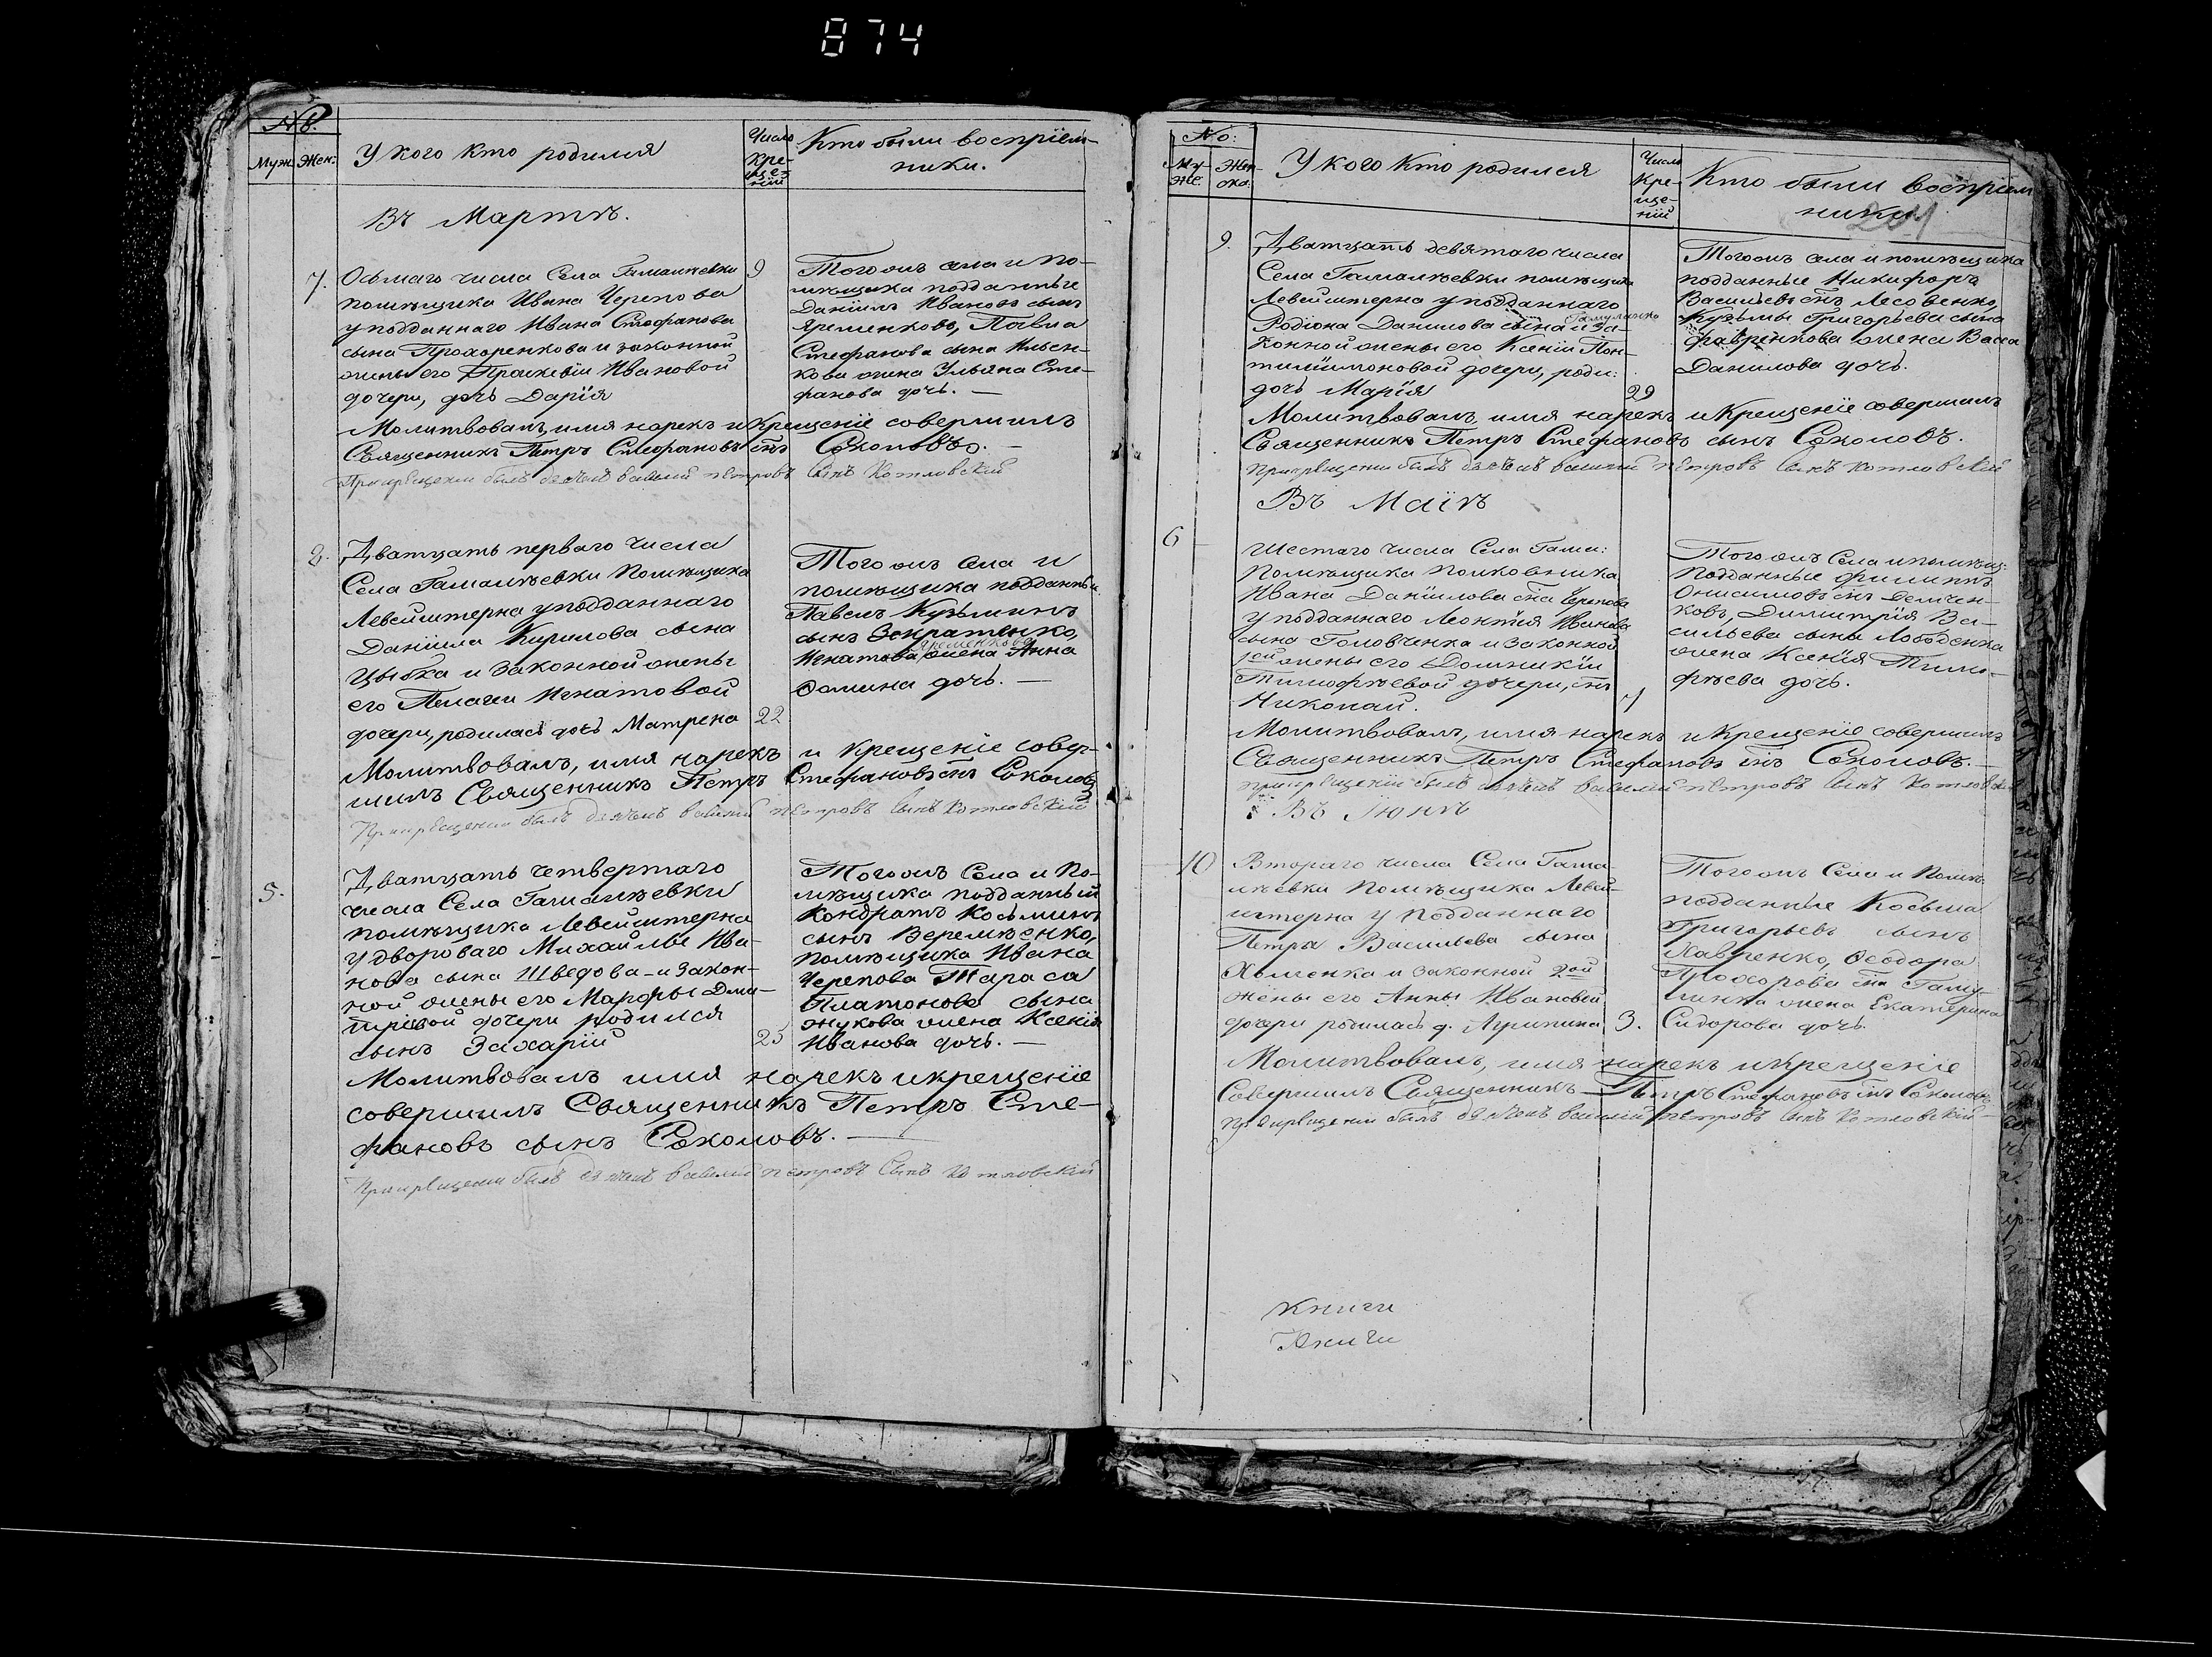 874
№
Муж. Жен: У кого кто родился Число Кре-щенія Кто были воспріем-
ники.
Въ Мартѣ.
7. Осьмаго числа Села Гамалѣевки 9
помѣщика Ивана Черепова
у подданнаго Ивана Стефанова
сына Прохоренкова и законной
жены его Параскевіи Ивановой
дочери, дочь Дарія
Тогожъ села и по-
мѣщика подданные
Даніилъ Ивановъ сынъ
Яременково, Павла
Стефанова сына Ильен-
кова жена Ульяна Сте-
фанова дочь. —
Молитвовалъ, имя нарекъ и Крещеніе совершилъ
Священникъ Петръ Стефановъ снъ Соколовъ. —
былъ Петровъ сынъ Котловский
8. Дватцать перваго числа
Села Гамалѣевки Помѣщика
Левейштерна у подданнаго
Даніила Кирилова сына
Цыбка и Законной жены
его Пелагеи Игнатовой
дочери, родилась дочь Матрена 22
Тогожъ села и
помѣщика подданный
Павелъ Кузьминъ
сынъ
Яременкова
Игнатова жена Анна
Фомина дочь. —
Молитвовалъ, имя нарекъ и Крещеніе совер-
шилъ Священникъ Петръ Стефановъ снъ Соколовъ
былъ Петровъ сынъ Котловский
5. Дватцать четвертаго
числа Села Гамалѣевки
помѣщика Левейштерна
у двороваго Михайлы Ива-
нова сына Шведова и Закон-
ной жены его Марфы Дми-
тріевой дочери родился
сынъ Захарій 25
Тогожъ Села и По-
мѣщика подданный
Кондратъ Косьминъ
сынъ Веремѣенко,
помѣщика Ивана
Черепова Тараса
Платонова сына
Жукова жена Ксенія
Иванова дочь. —
Молитвовалъ имя нарекъ и крещеніе
совершилъ Священникъ Петръ Сте-
фановъ сынъ Соколовъ. —
былъ Петровъ Сынъ Котловский
No:
Му-же. Жен-ско: У кого Кто родился Число Кре-ще-нія Кто были воспріем
ники
201
9. Дватцать девятаго числа
Села Гамалѣевки помѣщика
Левейштерна у подданнаго
Гамулинко
Родіона Данилова сына и за-
конной жены его Ксеніи Пон-
телиймоновой дочери, роди:
дочь Марія 29
Тогожъ села и помѣщика
подданные Никифоръ
Васильевъ снъ Лесовенко,
Кузьмы Григорьева сына
Гавренкова жена Васса
Данилова дочь.
Молитвовалъ, имя нарекъ и Крещеніе совершилъ
Священникъ Петръ Стефановъ сынъ Соколовъ.
былъ Петровъ сынъ Котловский
Въ Маіѣ
6 Шестаго числа Села Гама:
Помѣщика Полковника
Ивана Данилова сна Черепова
у подданнаго Леонтія Иванова
сына Головченка и Законной
1ей жены его Домникіи
Тимофѣевой дочери, снъ
Николай. 7
Тогожъ Села и помѣщ:
Подданные Филиппъ
Онисимовъ снъ Демчен-
ковъ, Димитрія Ва-
сильева сына Лободенка
жена Ксенія Тимо-
фѣева дочь.
Молитвовалъ, имя нарекъ и Крещеніе совершилъ
Священникъ Петръ Стефановъ снъ Соколовъ. —
былъ Петровъ сынъ Котловский
Въ Іюнѣ
10 Втораго числа Села Гама-
лѣевки Помѣщика Левей-
штерна у Подданнаго
Петра Васильева сына
Хоменка и Законной 2ой
жены его Анны Ивановой
дочери родилась д. Агрипина 3.
Тогожъ Села и Помѣ:
подданные Косьма
Григорьевъ сынъ
Гавренко, Ѳеодора
Прохорова сна Гаму-
линка жена Екатерина
Сидорова дочь.
Молитвовалъ, имя нарекъ и крещеніе
Совершилъ Священникъ Петръ Стефановъ снъ Соколовъ
былъ Петровъ сынъ Котловский
Книги
Книги